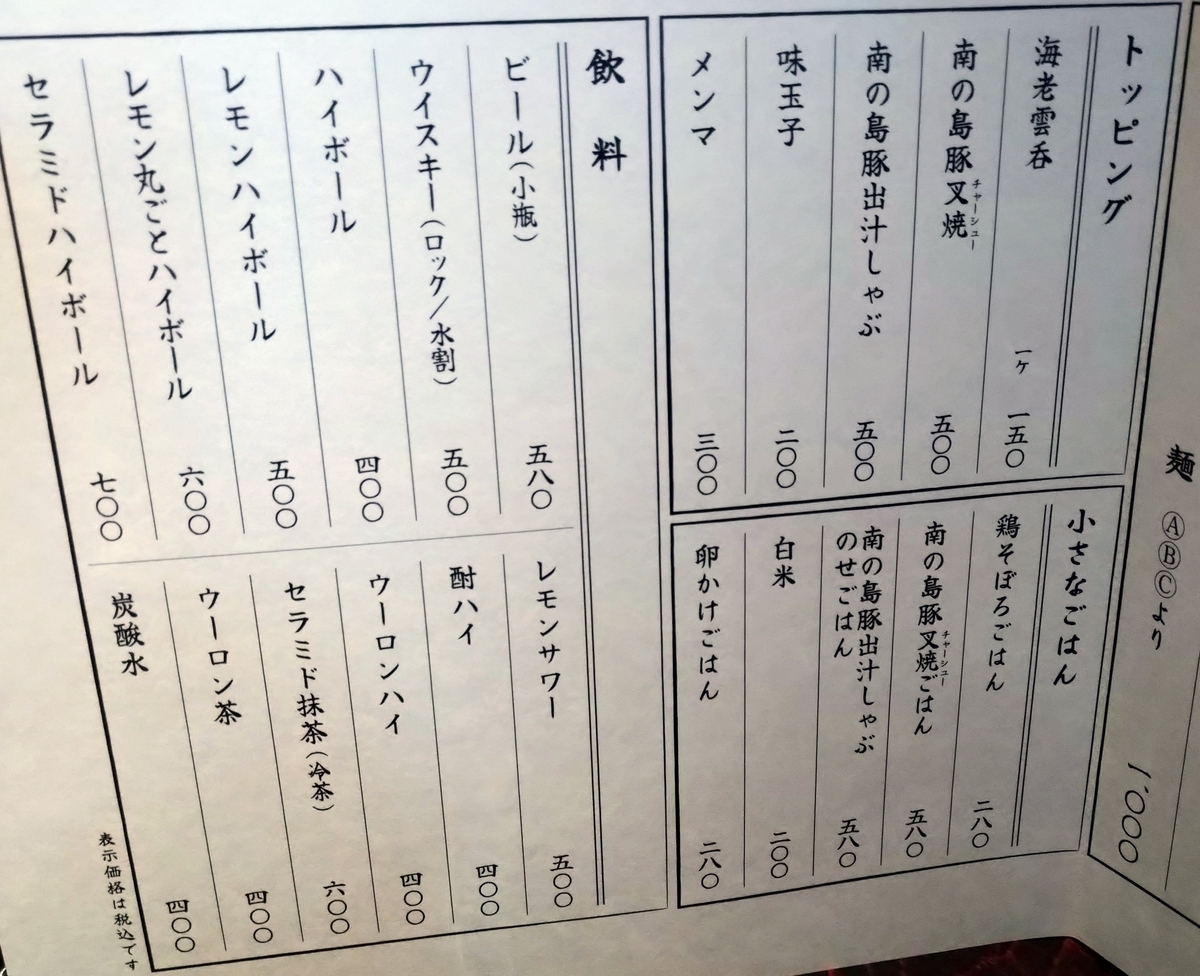 麺 ⒶⒷⒸより 一、〇〇〇
トッピング
海老雲呑 一ケ 一五〇
南の島豚叉焼 五〇〇
チャーシュー
南の島豚出汁しゃぶ 五〇〇
味玉子 二〇〇
メンマ 三〇〇
小さなごはん
鶏そぼろごはん 二八〇
南の島豚叉焼ごはん 五八〇
チャーシュー
南の島豚出汁しゃぶ
のせごはん 五八〇
白米 二〇〇
卵かけごはん 二八〇
飲料
ビール(小瓶) 五八〇
ウイスキー(ロック/水割) 五〇〇
ハイボール 四〇〇
レモンハイボール 五〇〇
レモン丸ごとハイボール 六〇〇
セラミドハイボール 七〇〇
レモンサワー 五〇〇
酎ハイ 四〇〇
ウーロンハイ 四〇〇
セラミド抹茶(冷茶) 六〇〇
ウーロン茶 四〇〇
炭酸水 四〇〇
表示価格は税込です